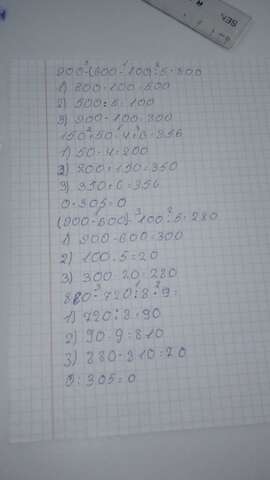 900-(600-100):5=800
1) 600-100=500
2) 500:5=100
3) 900-100=800
150+50·4+6=356
1) 50·4=200
2) 200+150=350
3) 350+6=356
0·305=0
(900-600)-100:5=280
1) 900-600=300
2) 100:5=20
3) 300-20=280
880-720:8·9=
1) 720:8=90
2) 90·9=810
3) 880-810=70
0:305=0